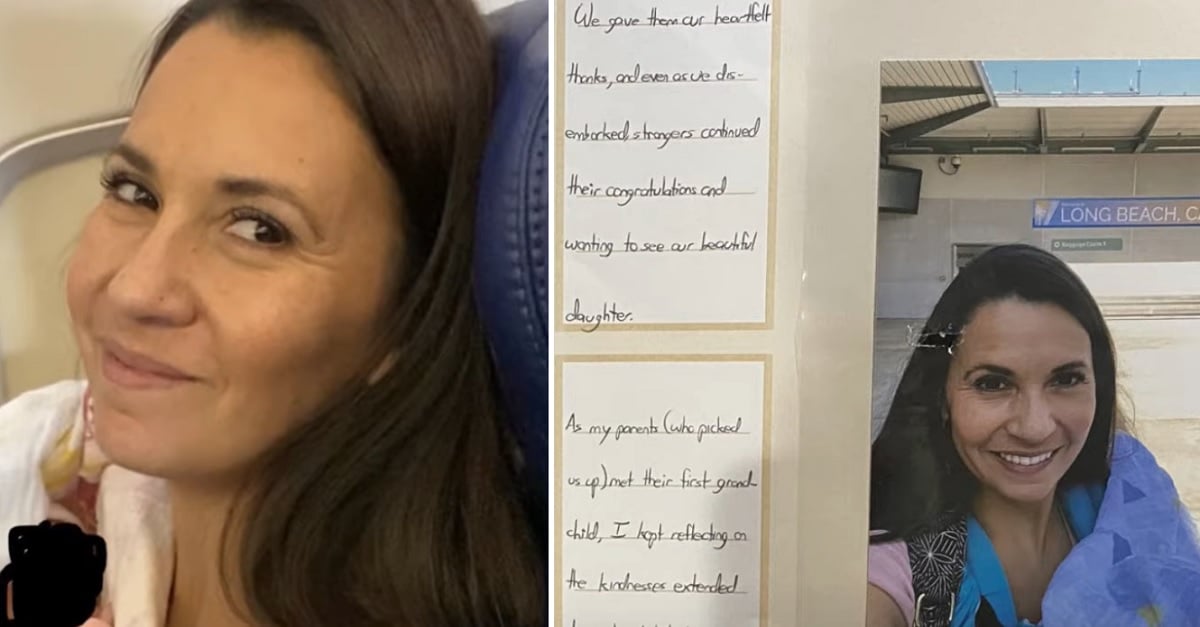 We gave them our heartfelt
thanks, and even as we dis-
embarked, strangers continued
their congratulations and
wanting to see our beautiful
daughter.
As my parents (who picked
us up) met their first grand-
child, I kept reflecting on
the kindnesses extended
LONG BEACH, C
Baggage Claim